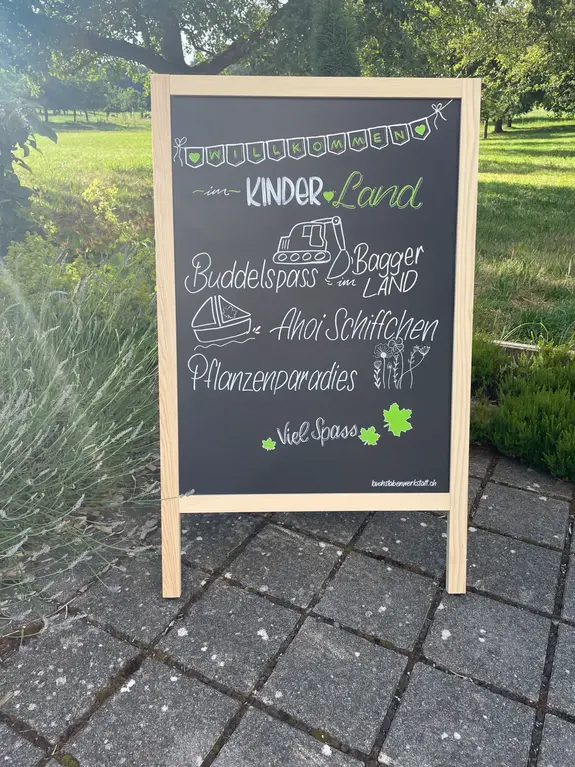 WILLKOMMEN
im
KINDER Land
Buddelspass im Bagger LAND
Ahoi Schiffchen
Pflanzenparadies
Viel Spass
buchstabenwerkstatt.ch